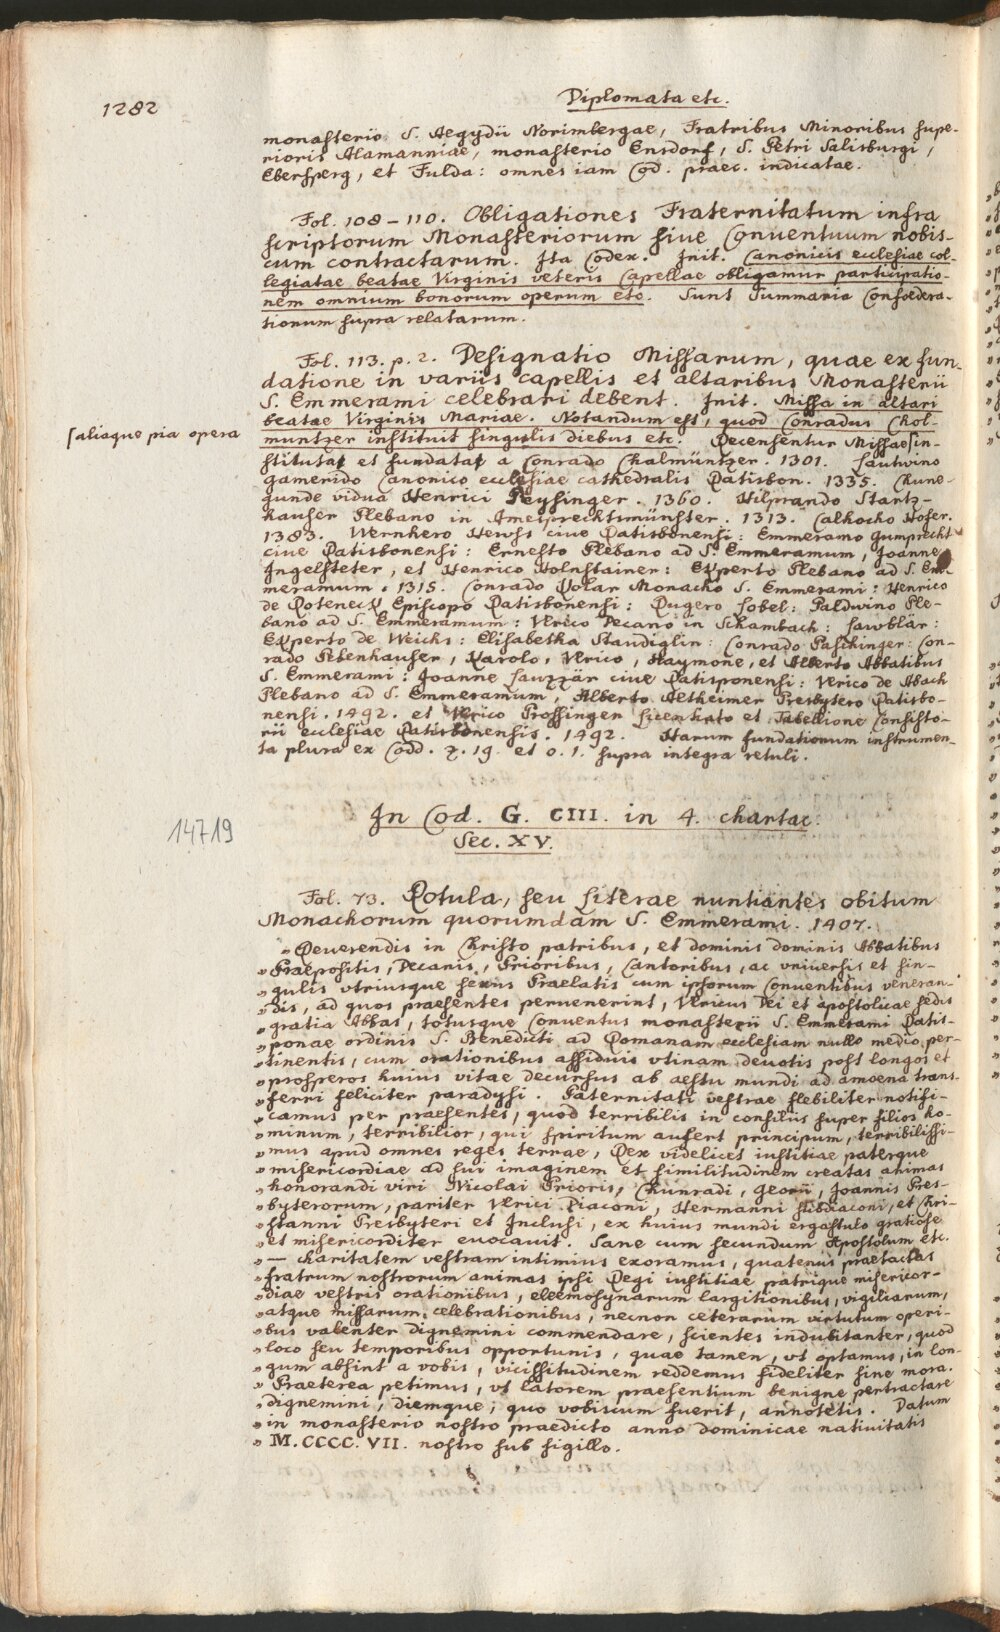 1282
Diplomata etc.
monasterio S. Aegydii Norimbergae, Fratribus Minoribus supe-
rioris Alamanniae, monasterio Ensdorf, S. Petri Salisburgi,
Ebersperg, et Fulda: omnes iam Cod. praec. indicatae.
Fol. 108-110. Obligationes Fraternitatum infra
scriptorum Monasteriorum sive Conventuum nobis-
cum contractarum. Ita Codex. Init. Canonicis ecclesiae col-
legiatae beatae Virginis veteris Capellae obligamur participatio-
nem omnium bonorum operum etc. Sunt Summaria Confoedera-
tionum supra relatarum.
Fol. 113. p. 2. Designatio Missarum, quae ex fun-
datione in variis capellis et altaribus Monasterii
S. Emmerami celebrari debent. Init. Missa in altari
beatae Virginis Mariae. Notandum est, quod Conradus Chol-
saliaque pia opera
muntzer instituit singulis diebus etc. Decensentur Missae in-
stitutae et fundatae a Conrado Chalmüntzer. 1301. Lautwino
gamerido Canonico ecclesiae cathedralis Ratisbon. 1335. Chune-
gunde vidua Henrici Reysinger. 1360. Hilprando Startz-
hauser Plebano in Ameisprechtsmünster. 1313. Calhocho Hofer.
1383. Wernhero Henss cive Ratisbonensi: Emmeramo Gumprecht
cive Ratisbonensi: Ernesto Plebano ad S. Emmeramum, Joanne
Ingelsteter, et Henrico Holnstainer: Experto Plebano ad S. Em-
meramum. 1315. Conrado Volar Monacho S. Emmerami: Henrico
de Roteneck Episcopo Ratisbonensi: Rugero Lobel: Paldwino Ple-
bano ad S. Emmeramum: Ulrico Decano in Schambach: Lawblär:
Experto de Weichs: Elisabetha Staudiglin: Conrado Paschinger: Con-
rado Pebenhauser, Karolo, Ulrico, Haymone, et Alberto Abbatibus
S. Emmerami: Joanne Lauzzar cive Ratisponensi: Ulrico de Abach
Plebano ad S. Emmeramum, Alberto Aetheimer Presbytero Ratisbo-
nensi. 1492. et Ulrico Prossinger Licentiato et Tabellione Consisto-
rii ecclesiae Ratisbonensis. 1492. Harum fundationum instrumen-
ta plura ex Codd. Z. 19. et O. 1. supra integra retuli.
14719
In Cod. G. CIII. in 4. chartac.
Sec. XV.
Fol. 73. Rotula, seu Literae nuntiantes obitum
Monachorum quorumdam S. Emmerami. 1407.
„ Reverendis in Christo patribus, et dominis dominis Abbatibus
„ Praepositis, Decanis, Prioribus, Cantoribus, ac universis et sin-
„ gulis utriusque sexus Praelatis cum ipsorum Conventibus veneran-
„ dis, ad quos praesentes pervenerint, Ulricus Dei et apostolicae sedis
„ gratia Abbas, totusque Conventus monasterii S. Emmerami Ratis-
„ ponae ordinis S. Benedicti ad Romanam ecclesiam nullo medio per-
„ tinentis, cum orationibus assiduis utinam devotis post longos et
„ prosperos huius vitae decursus ab aestu mundi ad amoena trans-
„ ferri feliciter paradysi. Paternitati vestrae flebiliter notifi-
„ camus per praesentes, quod terribilis in consiliis super filios ho-
„ minum, terribilior, qui spiritum aufert principum, terribilissi-
„ mus apud omnes reges terrae, Rex videlicet iustitiae paterque
„ misericordiae ad sui imaginem et similitudinem creatas animas
„ honorandi viri Nicolai Prioris, Chunradi, Georii, Joannis Pres-
„ byterorum, pariter Ulrici Diaconi, Hermanni Subdiaconi, et Chri-
„ stanni Presbyteri et Inclusi, ex huius mundi ergastulo gratiose
„ et misericorditer evocavit. Sane cum secundum Apostolum etc.
„ — charitatem vestram intimius exoramus, quatenus praetactas
„ fratrum nostrorum animas ipsi Regi iustitiae patrique misericor-
„ diae vestris orationibus, eleemosynarum largitionibus, vigiliarum,
„ atque missarum celebrationibus, necnon ceterarum virtutum operi-
„ bus valenter dignemini commendare, scientes indubitanter, quod
„ loco seu temporibus opportunis, quae tamen, ut optamus, in lon-
„ gum absint a vobis, vicissitudinem reddemus fideliter sine mora.
„ Praeterea petimus, ut latorem praesentium benigne pertractare
„ dignemini, diemque, quo vobiscum fuerit, annotetis. Datum
„ in monasterio nostro praedicto anno dominicae nativitatis
„ M.CCCC.VII. nostro sub sigillo.